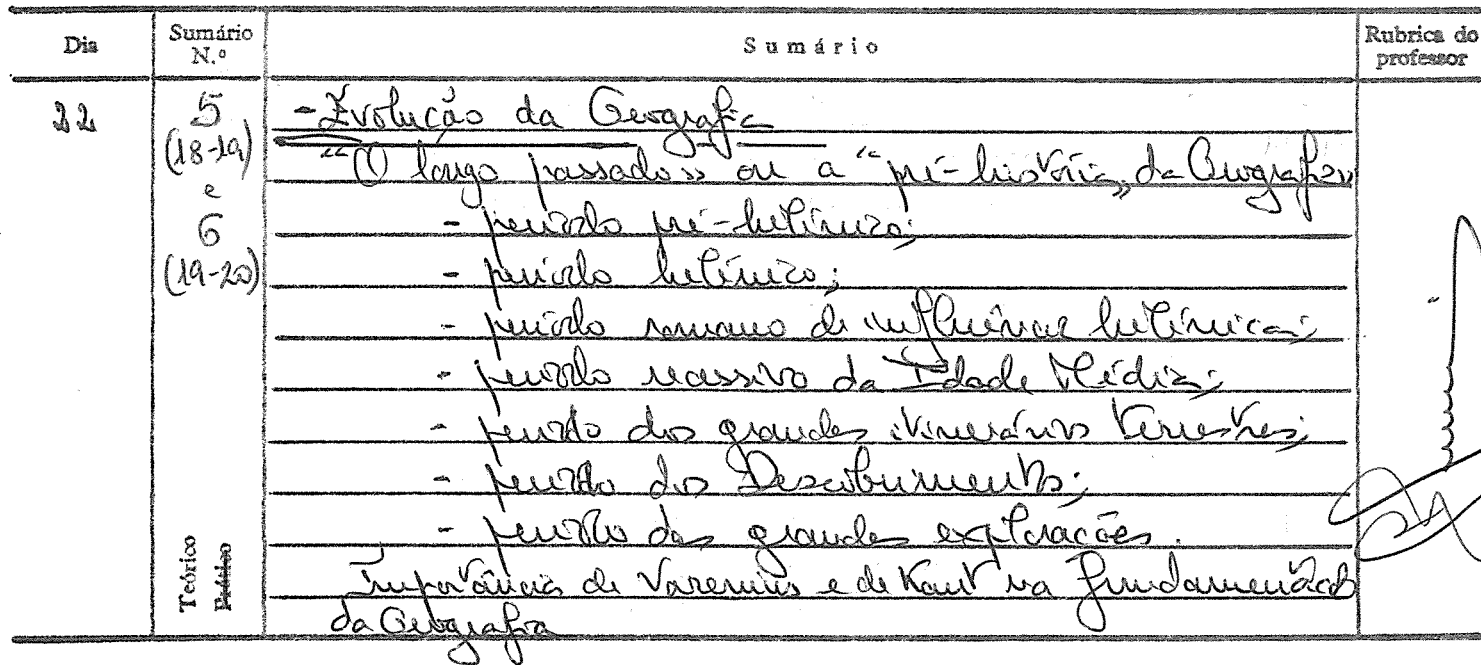 Dia Sumário N.º Sumário Rubrica do professor
22 5 - Evolução da Geografia
(18-19) "O longo passado» ou a "pré-história» da Geografia»
e - período pré-helénico;
6 - período helénico;
(19-20) - período romano de influência helénica;
- período recessivo da Idade Média;
- período dos grandes itinerários terrestres;
- período dos Descobrimentos;
- período das grandes explorações.
Teórico Prático Importância de Varenius e de Kant na fundamentação
da Geografia